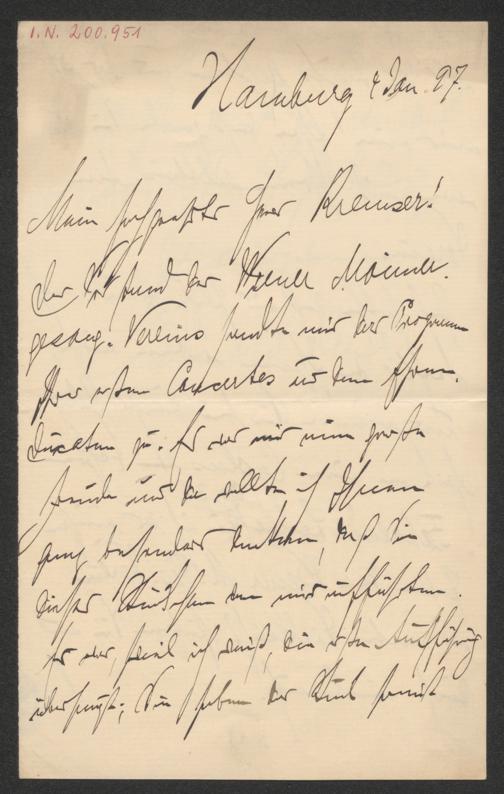 I.N. 200.951
Hamburg 4 Jan. 97.
Mein hochgeehrter Herr Kremser!
Der Vorstand des Wiener Männer-
gesang-Vereins sendte mir das Programm
Ihres ersten Concertes und den Ehren-
ducaten zu. Es war mir eine große
Freude und da wollte ich Ihnen
ganz besonders danken, daß Sie
dieses Stückchen von mir aufführten.
Es war, soviel ich weiß, die erste Aufführung
überhaupt; Sie haben das Stück somit